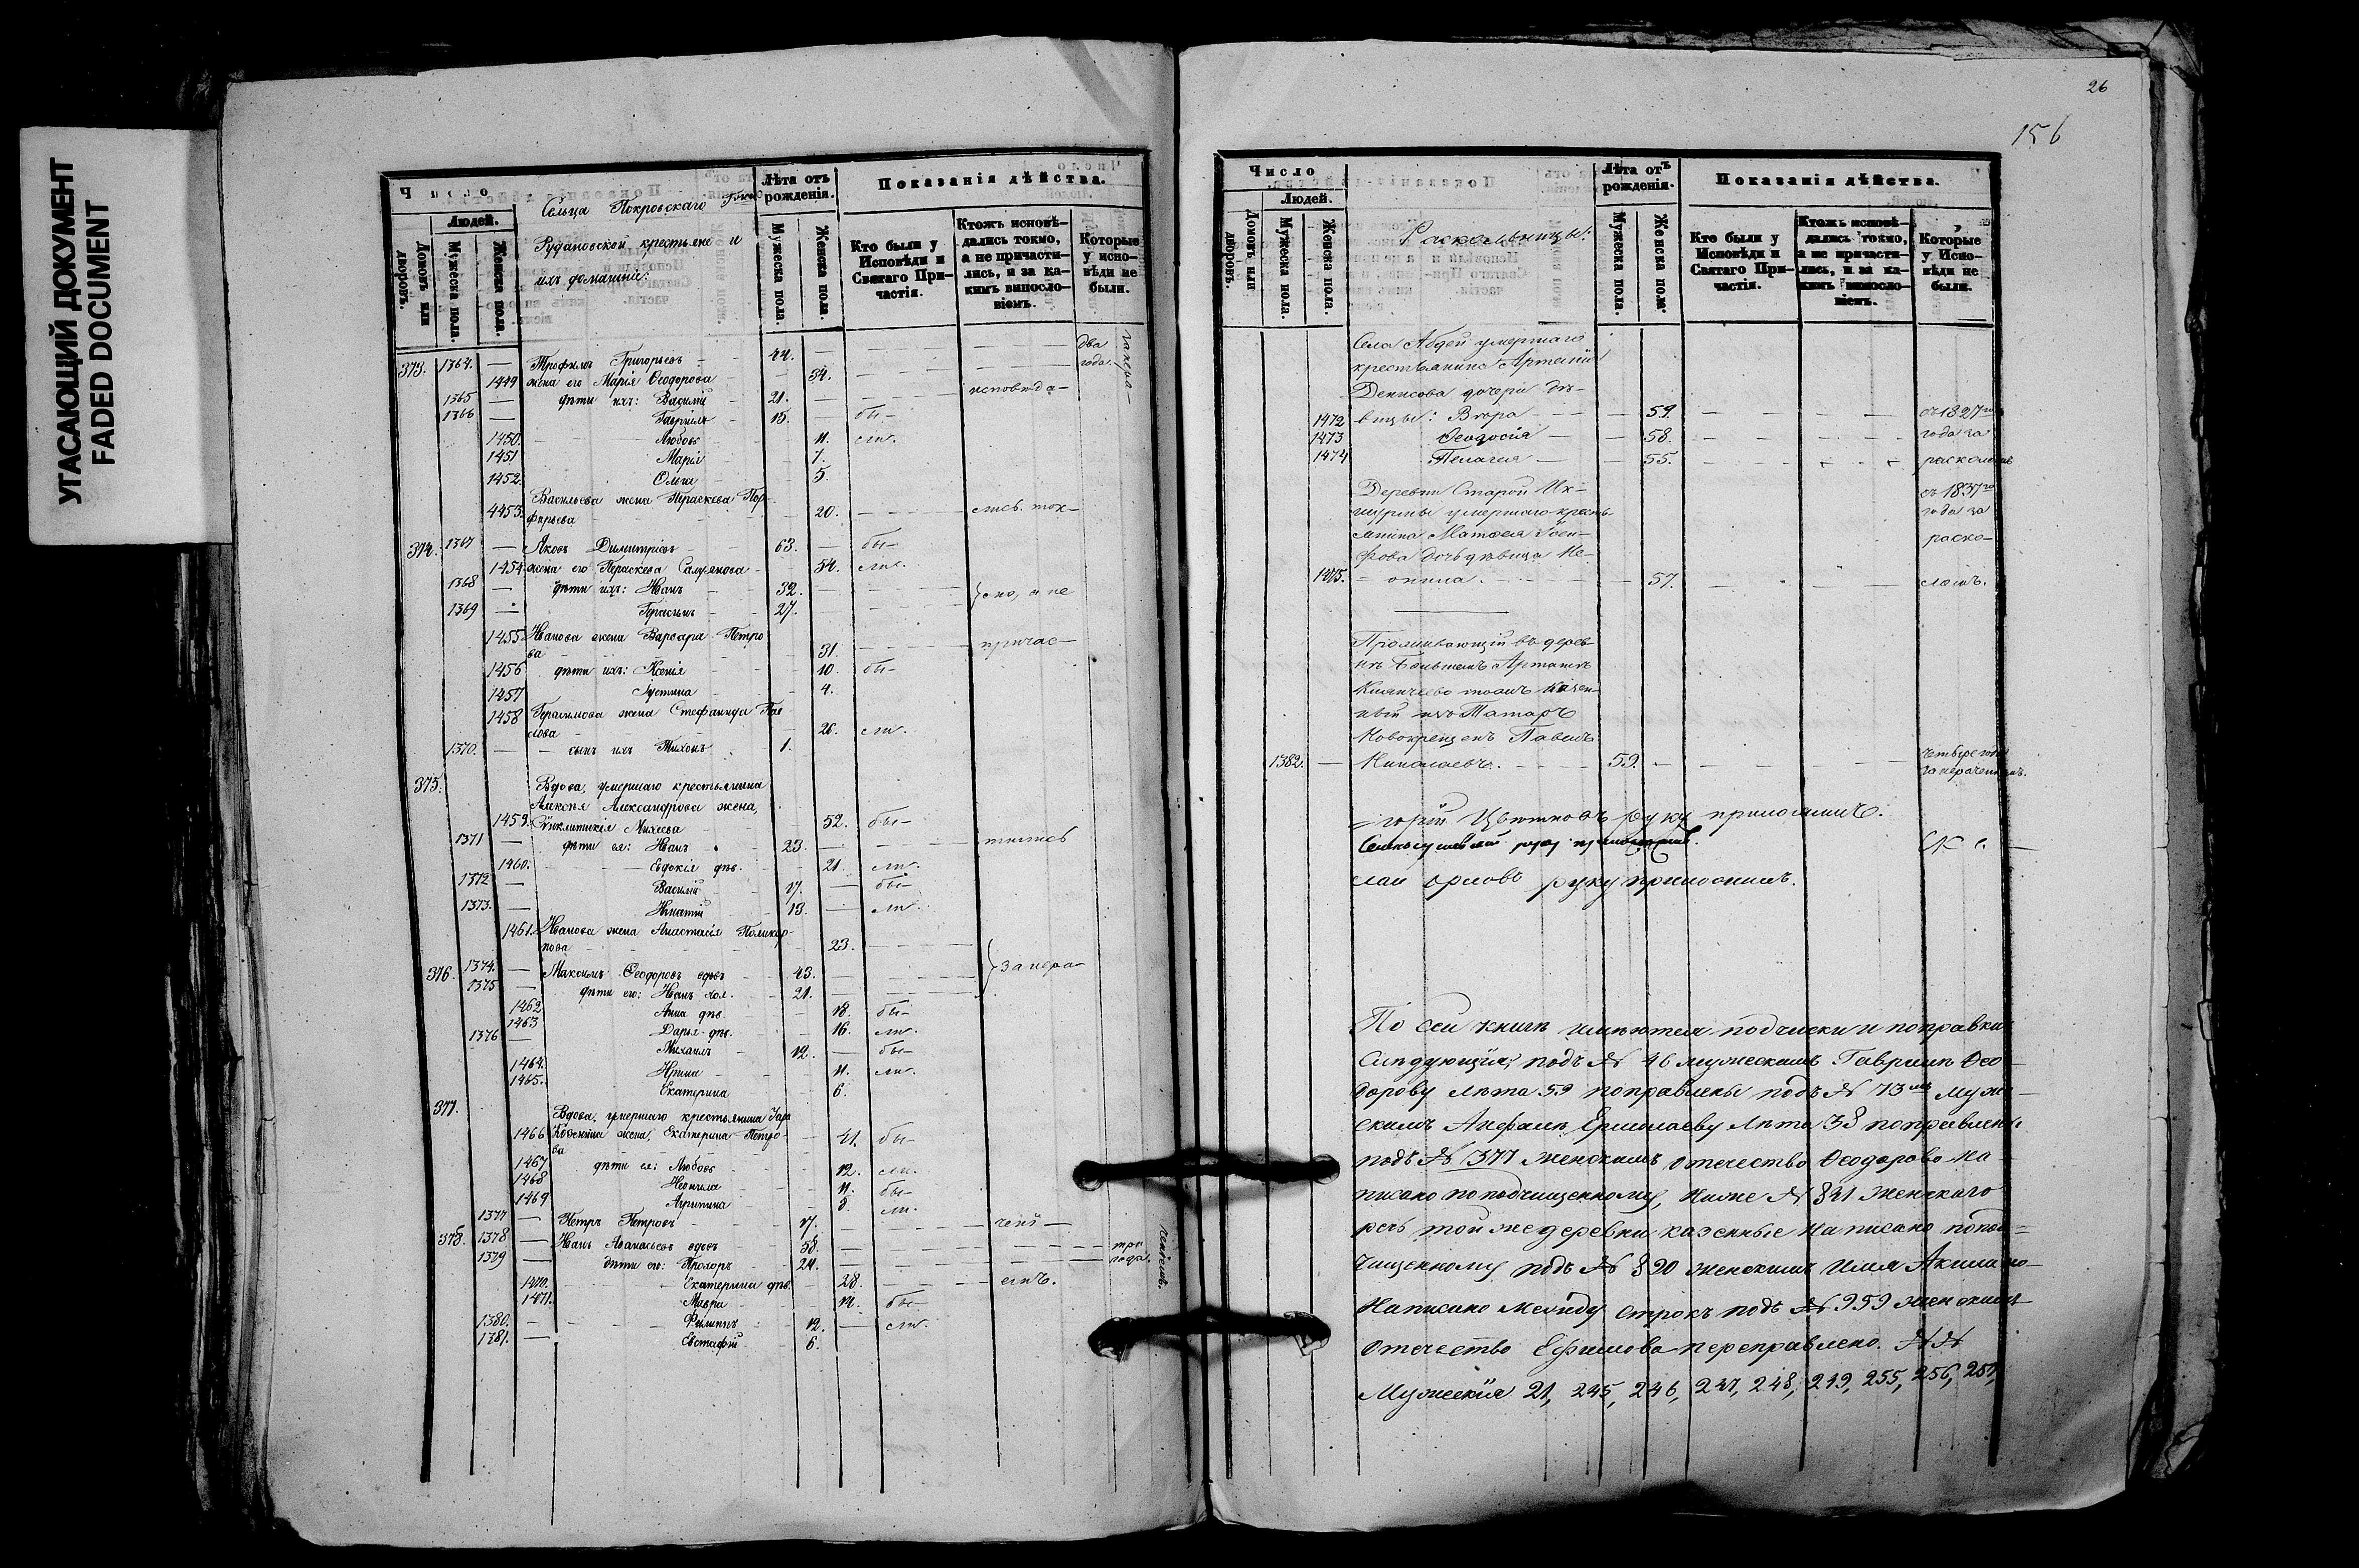 УГАСАЮЩИЙ ДОКУМЕНТ
FADED DOCUMENT
Число
Людей.
Домовъ или дворовъ.
Мужеска пола.
Женска пола.
Сельца Покровскаго
крестьяне и
ихъ домашніе:
Лѣта отъ рожденія.
Мужеска пола.
Женска пола.
Показанія дѣйства.
Кто были у Исповѣди и Святаго Причастія.
Ктожъ исповѣдались токмо, а не причастились, и за какимъ винословіемъ.
Которые у исповѣди не были.
373. 1364. — Трофимъ Григорьевъ 44. два
1449 жена его Марія Ѳеодорова 54. года
1365 — дѣти ихъ: Василій 21. исповѣда-
1366 — Гавріилъ 15. бы-
1450. Любовь 11. ли.
1451 Марія 7.
1452. Ольга 5.
Васильева жена Параскева Пор-
4453. фирьева 20. лись ток-
374. 1367 — Яковъ Димитріевъ 63. бы-
1454 жена его Параскева 54. ли.
1368 — дѣти ихъ: Иванъ 32. мо, а не
1369 — Герасимъ 27.
1455 Иванова жена Варвара Петро
ва 31. причас-
1456 дѣти ихъ: Ксенія 10. бы-
1457 Іустина 4.
1458 Герасимова жена Стефанида Пав
лова 26. ли.
1370. — сынъ ихъ Тихонъ 1.
375. Вдова, умершаго крестьянина
Алексѣя Александрова жена,
1459. Сѵнклитикія Михеева 52. бы-
1371 — дѣти ея: Иванъ 23. тились
1460. Евдокія дѣв. 21. ли.
1372 — Василій 17. бы-
1373. — Игнатій 13. ли.
1461. Иванова жена Анастасія Поликар-
пова 23.
376. 1374. — Максимъ Ѳеодоровъ вдовъ 43. за нера-
1375 — дѣти его: Иванъ хол. 21.
1462 Анна дѣв. 18. бы-
1463 Дарья дѣв. 16. ли.
1376 — Михаилъ 12. бы-
1464. Ирина 11. ли.
1465. Екатерина 6.
377. Вдова, умершаго крестьянина
1466 жена, Екатерина Петро-
ва 41. бы-
1467 дѣти ея: Любовь 12. ли.
1468 Неонила 11. бы-
1469 Агрипина 8. ли.
1377 — Петръ Петровъ 17. чені-
378. 1378 — Иванъ Аѳанасьевъ вдовъ 58. три
1379 — дѣти его: Прохоръ 24. года.
1470. Екатерина дѣв. 28. емъ.
1471. Мавра 14. бы-
1380. Филиппъ 12. ли.
1381. — Евстафій 6.
26
156
Число
Людей.
Домовъ или дворовъ.
Мужеска пола.
Женска пола.
Раскольницы:
Лѣта отъ рожденія.
Мужеска пола.
Женска пола.
Показанія дѣйства.
Кто были у Исповѣди и Святаго Причастія.
Ктожъ исповѣдались токмо, а не причастились, и за какимъ винословіемъ.
Которые у Исповѣди не были.
Села Абдей умершаго
крестьянина
Денисова дочери дѣ-
1472 вицы: Вѣра 59. съ 1827го
1473 Ѳеодосія 58. года за
1474 Пелагея 55.
Деревни Старой съ 1837го
умершаго кресть- года за
янина Матѳея раско-
дочь дѣвица Не-
1475. онила. 57. ломъ.
Проживающій въ дерев-
нѣ
казен-
ный изъ Татаръ
Новокрещенъ Павелъ
1382. — Николаевъ. 59. — четыре года
Цвѣтковъ руку приложилъ.
руку приложилъ.
лай Орловъ руку приложилъ.
По сей книгѣ имѣются подчистки и поправки
слѣдующія, подъ № 46 мужескимъ Гаврилѣ Ѳео-
дорову лѣта 59 поправлены подъ № 73мъ муже-
скимъ Ермилаеву лѣта 38 поправлены
подъ № 1377 женскимъ отечество Ѳеодорова на-
писано по подчищенному, ниже № 831 женскаго
речь той же деревни казенные написано подъ-
чищенному подъ № 890 женскимъ имя Акилина
написано между строкъ подъ № 959 женскимъ
отечество Ефимова переправлено. №№
Мужескія 21, 245, 246, 247, 248, 249, 255, 256, 257,